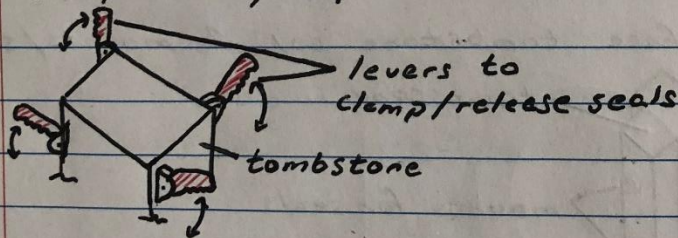 levers to
clamp/release seals
tombstone